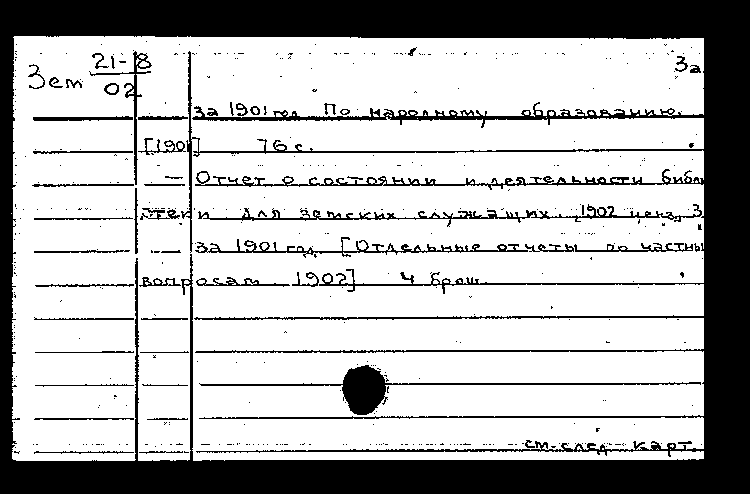 Зем 21-8/02
За
за 1901 год По народному образованию.
[1901] 76 с.
— Отчет о состоянии и деятельности библи
отеки для земских служащих. 1902 ценз. 3
за 1901 год. [Отдельные отчеты по частны
вопросам 1902] 4 брош.
см. след карт.